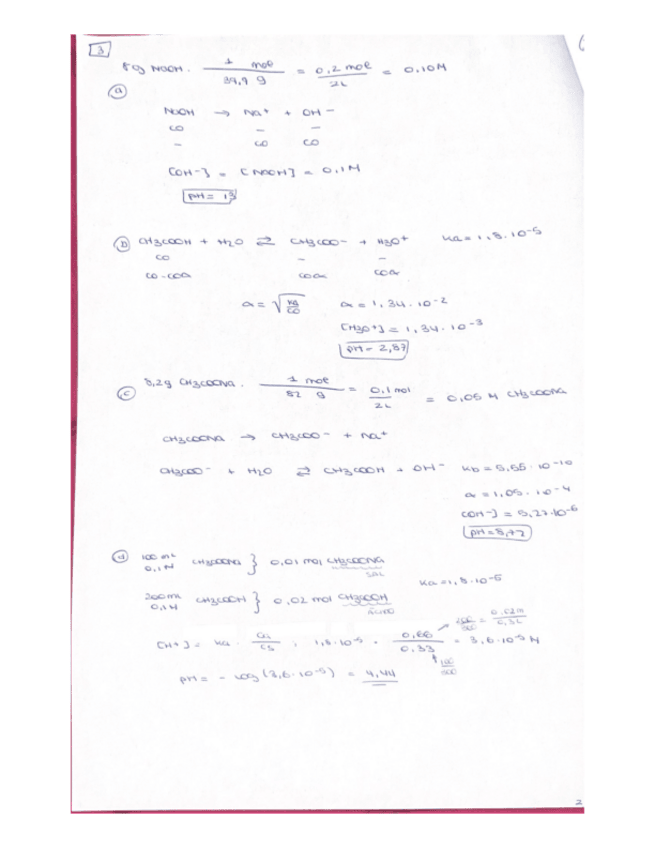 3
8g NaOH . 1 mol / 39,9 g = 0,2 mol / 2L = 0,10M
a
NaOH → Na+ + OH-
CO - -
- CO CO
[OH-] = [NaOH] = 0,1M
pH = 13
b CH3COOH + H2O ⇌ CH3COO- + H3O+ Ka = 1,8.10-5
CO - -
CO-COα COα COα
α = √Ka/CO α = 1,34.10-2
[H3O+] = 1,34.10-3
pH = 2,87
c 8,2g CH3COONa . 1 mol / 82 g = 0,1 mol / 2L = 0,05 M CH3COONa
CH3COONa → CH3COO- + Na+
CH3COO- + H2O ⇌ CH3COOH + OH- Kb = 5,55.10-10
α = 1,05.10-4
[OH-] = 5,27.10-6
d 100 mL 0,1 M CH3COONa } 0,01 mol CH3COONa
SAL
Ka = 1,8.10-5
200 mL 0,1 M CH3COOH } 0,02 mol CH3COOH
ÁCIDO
[H+] = Ka . Ca/Cs ; 1,8.10-5 . 0,66/0,33 = 3,6.10-5 M
200/300 = 0,02m/0,3L
100/300
pH = - log (3,6.10-5) = 4,44
2